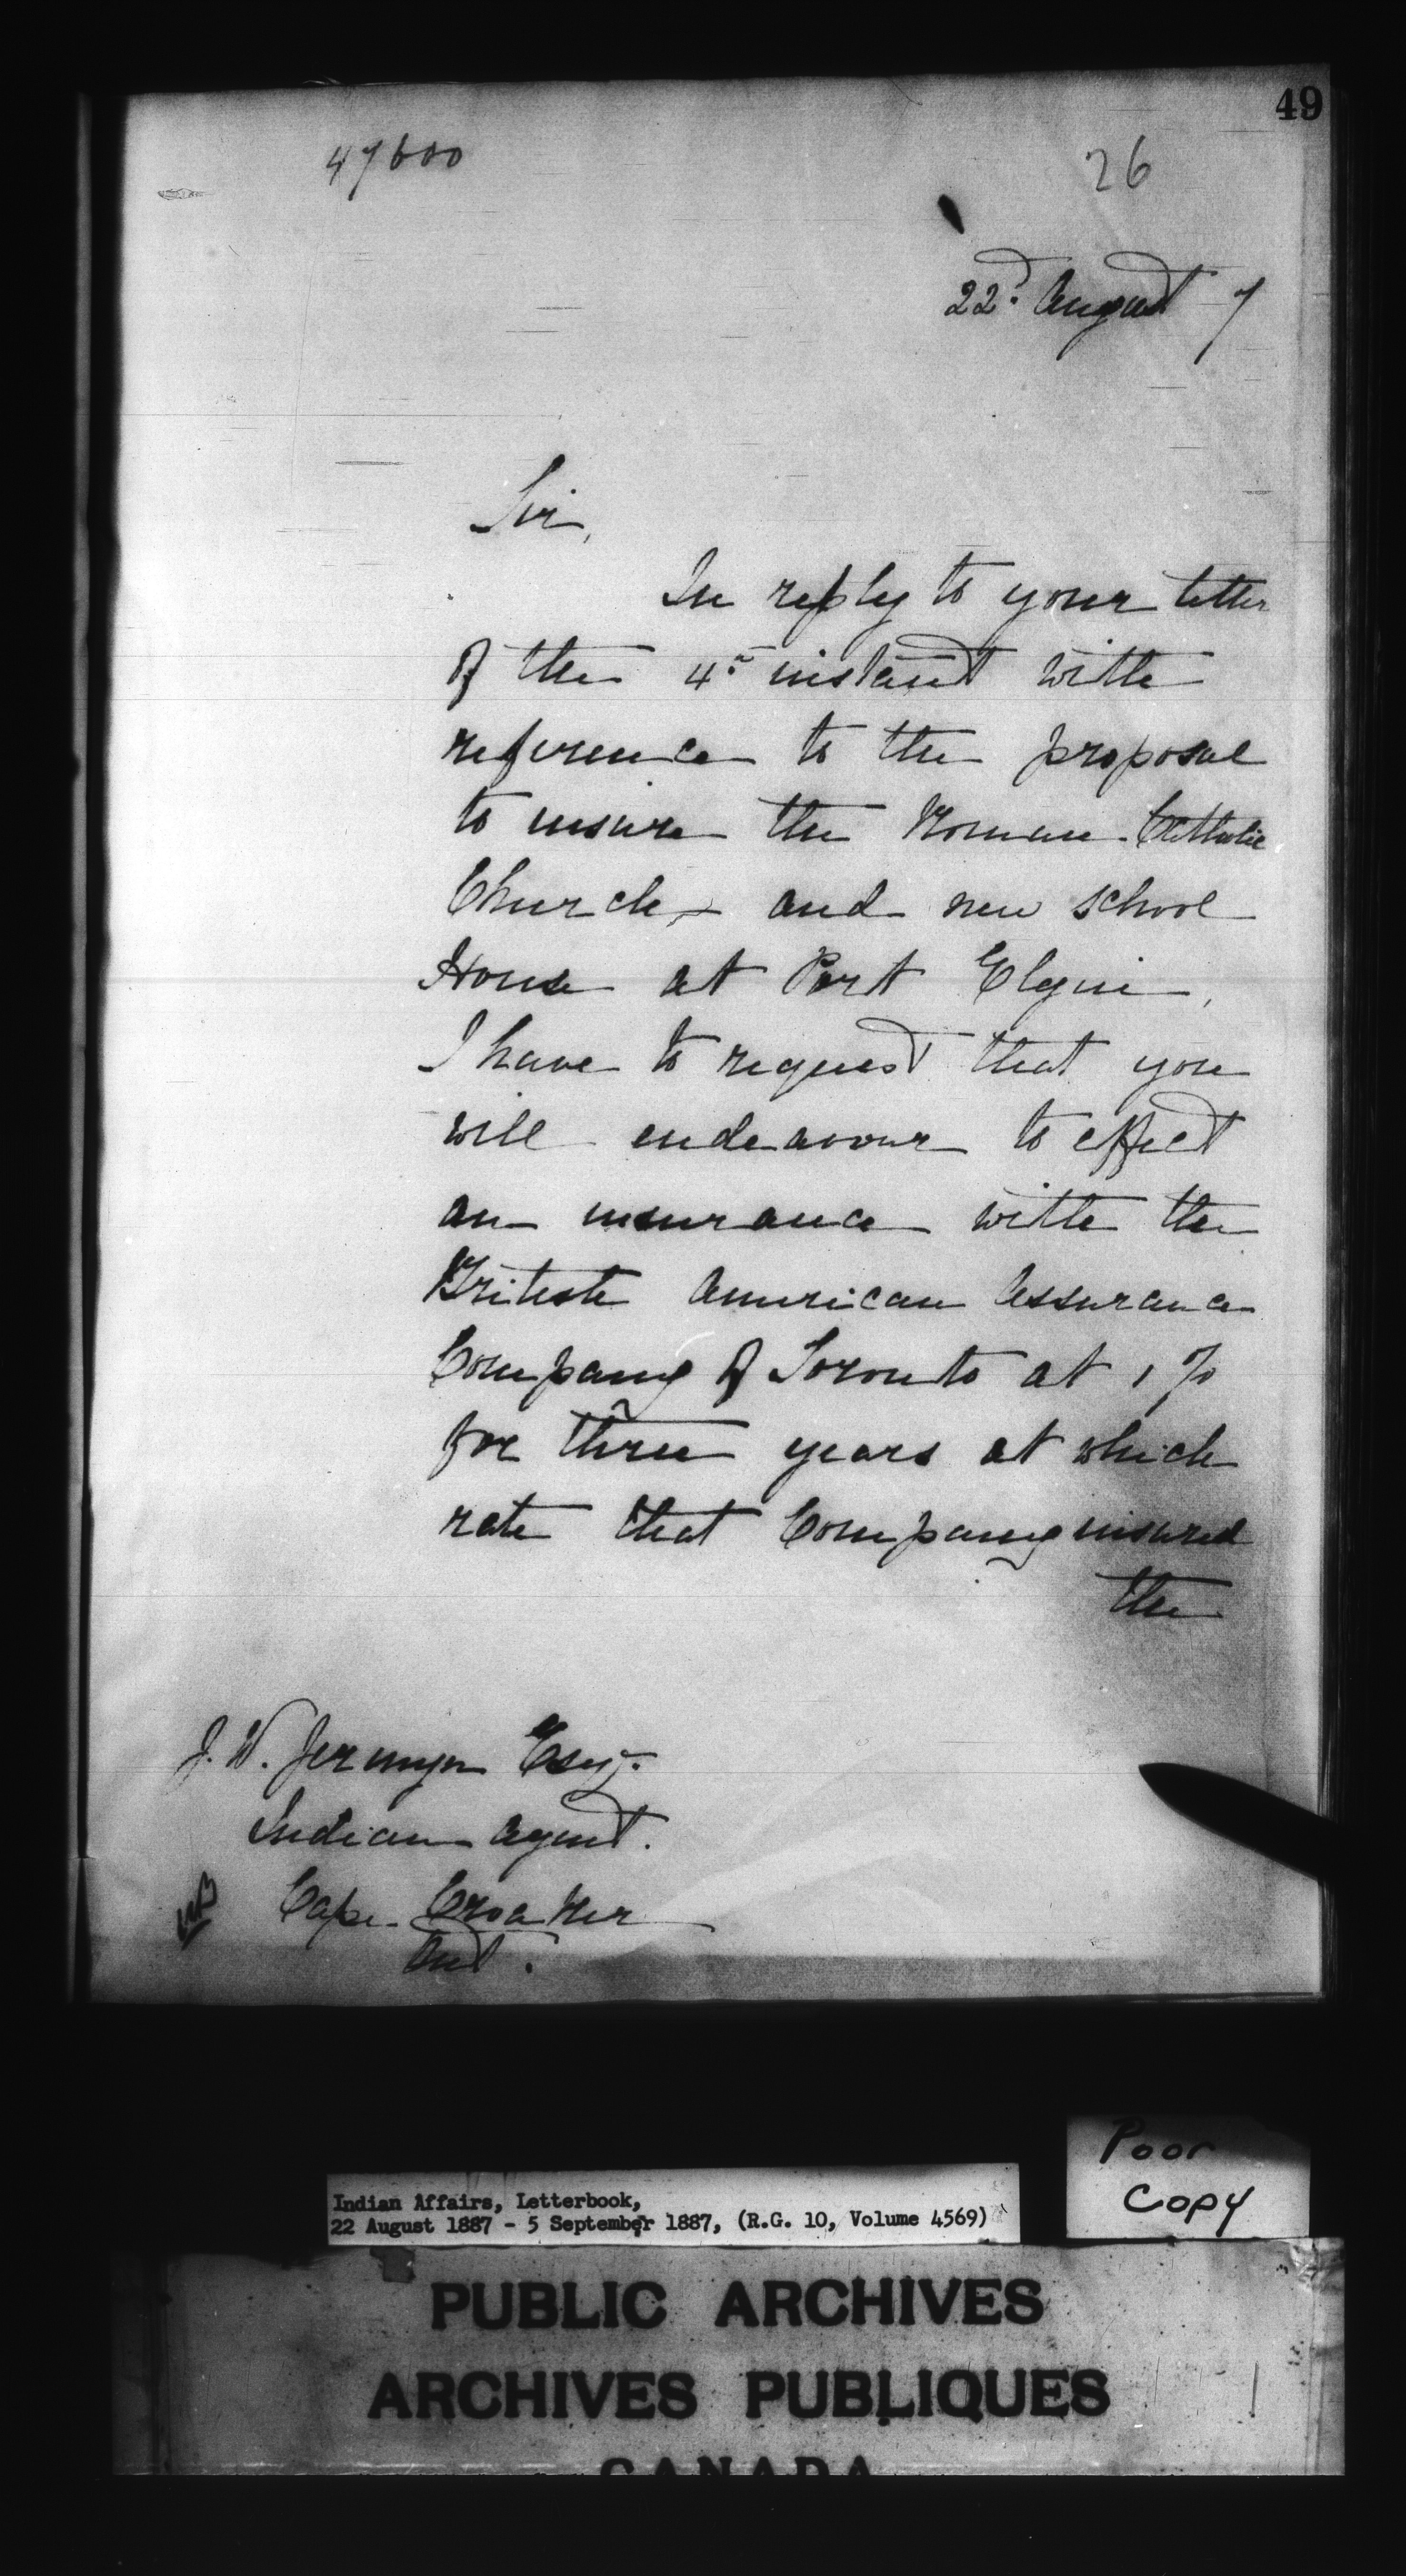 49
47600
26
22d. August 7
Sir,
In reply to your letter
of the 4th instant with
reference to the proposal
to insure the Roman Catholic
Church and new school
House at Port Elgin,
I have to request that you
will endeavour to effect
an insurance with the
British American Assurance
Company of Toronto at 1%
for three years at which
rate that Company insured
the
J. W. Jermyn Esq.
Indian Agent.
Cape Croaker
Ont.
Poor
Copy
Indian Affairs, Letterbook,
22 August 1887 - 5 September 1887, (R.G. 10, Volume 4569)
PUBLIC ARCHIVES
ARCHIVES PUBLIQUES
CANADA